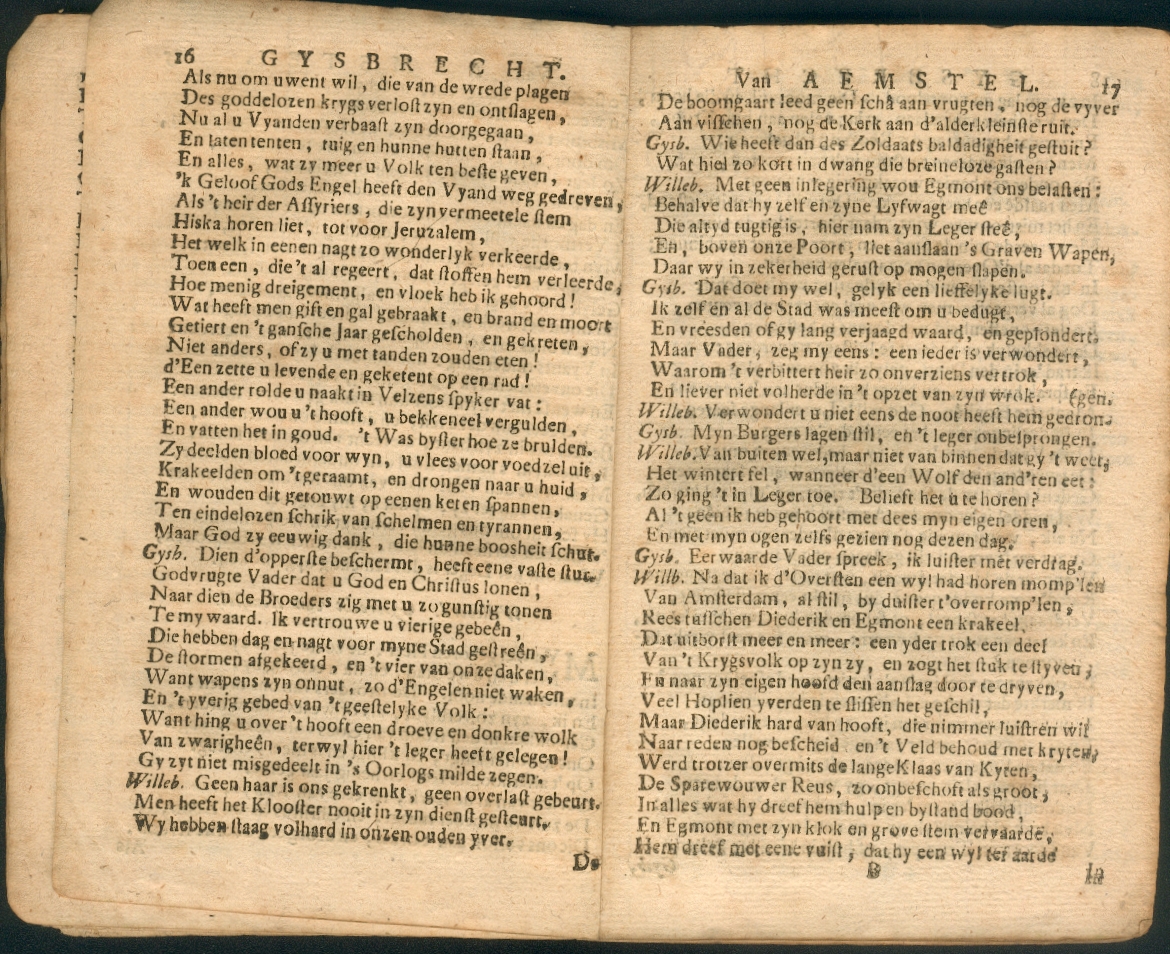 16 GYSBRECHT.
Als nu om uwent wil, die van de wrede plagen
Des goddelozen krygs verlost zyn en ontslagen,
Nu al u Vyanden verbaast zyn doorgegaan,
En laten tenten, tuig en hunne hutten staan,
En alles, wat zy meer u Volk ten beste geven,
'k Geloof Gods Engel heeft den Vyand weg gedreven,
Als 't heir der Assyriers, die zyn vermeetele stem
Hiska horen liet, tot voor Jeruzalem,
Het welk in eenen nagt zo wonderlyk verkeerde,
Toen een, die 't al regeert, dat stoffen hem verleerde,
Hoe menig dreigement, en vloek heb ik gehoord!
Wat heeft men gift en gal gebraakt, en brand en moort
Getiert en 't gansche Jaar gescholden, en gekreten,
Niet anders, of zy u met tanden zouden eten!
d'Een zette u levende en geketent op een rad!
Een ander rolde u naakt in Velzens spyker vat:
Een ander wou u 't hooft, u bekkeneel vergulden,
En vatten het in goud. 't Was byster hoe ze brulden.
Zy deelden bloed voor wyn, u vlees voor voedzel uit,
Krakeelden om 't geraamt, en drongen naar u huid,
En wouden dit getouwt op eenen keten spannen,
Ten eindelozen schrik van schelmen en tyrannen,
Maar God zy eeuwig dank, die hunne boosheit schut.
Gysb. Dien d'opperste beschermt, heeft eene vaste stut.
Godvrugte Vader dat u God en Christus lonen,
Naar dien de Broeders zig met u zo gunstig tonen
Te my waard. Ik vertrouwe u vierige gebeên,
Die hebben dag en nagt voor myne Stad gestreên,
De stormen afgekeerd, en 't vier van onze daken,
Want wapens zyn onnut, zo d'Engelen niet waken,
En 't yverig gebed van 't geestelyke Volk:
Want hing u over 't hooft een droeve en donkre wolk
Van zwarigheên, terwyl hier 't leger heeft gelegen!
Gy zyt niet misgedeelt in 's Oorlogs milde zegen.
Willeb. Geen haar is ons gekrenkt, geen overlast gebeurt.
Men heeft het Klooster nooit in zyn dienst gesteurt,
Wy hebben staag volhard in onzen ouden yver.
De
Van AEMSTEL. 17
De boomgaart leed geen schâ aan vrugten, nog de vyver
Aan visschen, nog de Kerk aan d'alderkleinste ruit.
Gysb. Wie heeft dan des Zoldaats baldadigheit gestuit?
Wat hiel zo kort in dwang die breineloze gasten?
Willeb. Met geen inlegering wou Egmont ons belasten:
Behalve dat hy zelf en zyne Lyfwagt meê
Die altyd tugtig is, hier nam zyn Leger steê,
En, boven onze Poort, liet aanslaan 's Graven Wapen,
Daar wy in zekerheid gerust op mogen slapen.
Gysb. Dat doet my wel, gelyk een lieffelyke lugt.
Ik zelf en al de Stad was meest om u bedugt,
En vreesden of gy lang verjaagd waard, en geplondert,
Maar Vader, zeg my eens: een ieder is verwondert,
Waarom 't verbittert heir zo onverziens vertrok,
En liever niet volherde in 't opzet van zyn wrok. (gen.
Willeb. Verwondert u niet eens de noot heeft hem gedron-
Gysb. Myn Burgers lagen stil, en 't leger onbesprongen.
Willeb. Van buiten wel, maar niet van binnen dat gy 't weet,
Het wintert fel, wanneer d'een Wolf den and'ren eet:
Zo ging 't in Leger toe. Belieft het u te horen?
Al 't geen ik heb gehoort met dees myn eigen oren,
En met myn ogen zelfs gezien nog dezen dag.
Gysb. Eerwaarde Vader spreek, ik luister met verdrag.
Willb. Na dat ik d'Oversten een wyl had horen momp'len
Van Amsterdam, al stil, by duister t'overromp'len,
Rees tusschen Diederik en Egmont een krakeel,
Dat uitborst meer en meer: een yder trok een deel
Van 't Krygsvolk op zyn zy, en zogt het stuk te styven,
En naar zyn eigen hoofd den aanslag door te dryven,
Veel Hoplien yverden te slissen het geschil,
Maar Diederik hard van hooft, die nimmer luistren wil
Naar reden nog bescheid en 't Veld behoud met kryten,
Werd trotzer overmits de lange Klaas van Kyten,
De Sparewouwer Reus, zo onbeschoft als groot,
In alles wat hy dreef hem hulp en bystand bood,
En Egmont met zyn klok en grove stem vervaarde,
Hem dreef met eene vuist, dat hy een wyl ter aarde
B In